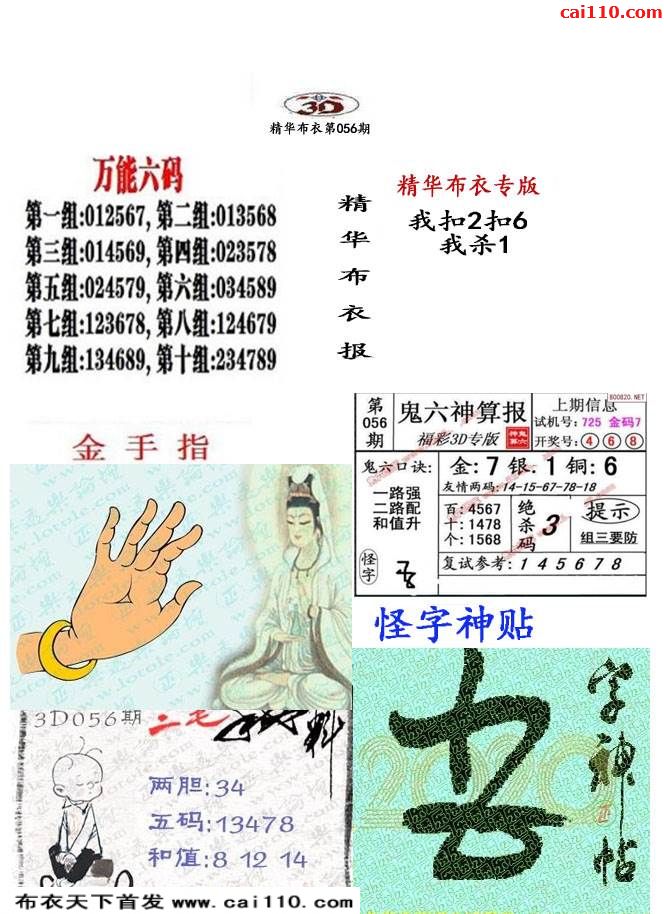 cai110.com
3D
精华布衣第056期
万能六码
第一组:012567, 第二组:013568
第三组:014569, 第四组:023578
第五组:024579, 第六组:034589
第七组:123678, 第八组:124679
第九组:134689, 第十组:234789
精华布衣报
精华布衣专版
我扣2扣6
我杀1
金手指
第056期
鬼六神算报
福彩3D专版
800820.NET
上期信息
试机号: 725 金码7
开奖号: 4 6 8
鬼六口诀:
一路强
二路配
和值升
怪字
金: 7 银: 1 铜: 6
友情两码: 14-15-67-78-18
百: 4567
十: 1478
个: 1568
绝杀码 3
提示
组三要防
复试参考: 1 4 5 6 7 8
怪字神贴
字神帖
2020
3D056期
二毛
两胆:34
五码:13478
和值: 8 12 14
布衣天下首发 www.cai110.com